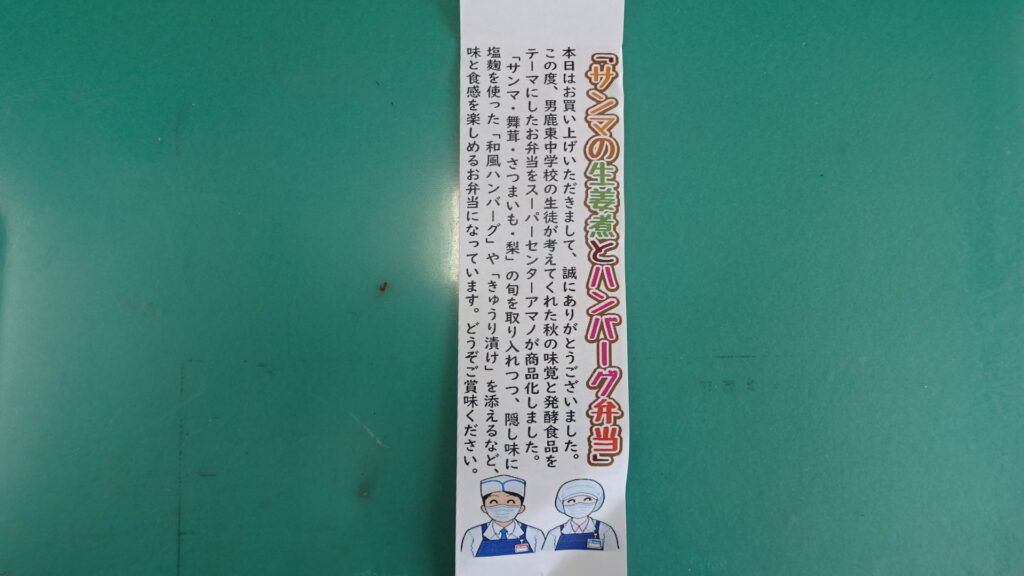 「サンマの生姜煮とハンバーグ弁当」
本日はお買い上げいただきまして、誠にありがとうございました。
この度、男鹿東中学校の生徒が考えてくれた秋の味覚と発酵食品を
テーマにしたお弁当をスーパーセンターアマノが商品化しました。
「サンマ・舞茸・さつまいも・梨」の旬を取り入れつつ、隠し味に
塩麹を使った「和風ハンバーグ」や「きゅうり漬け」を添えるなど、
味と食感を楽しめるお弁当になっています。どうぞご賞味ください。